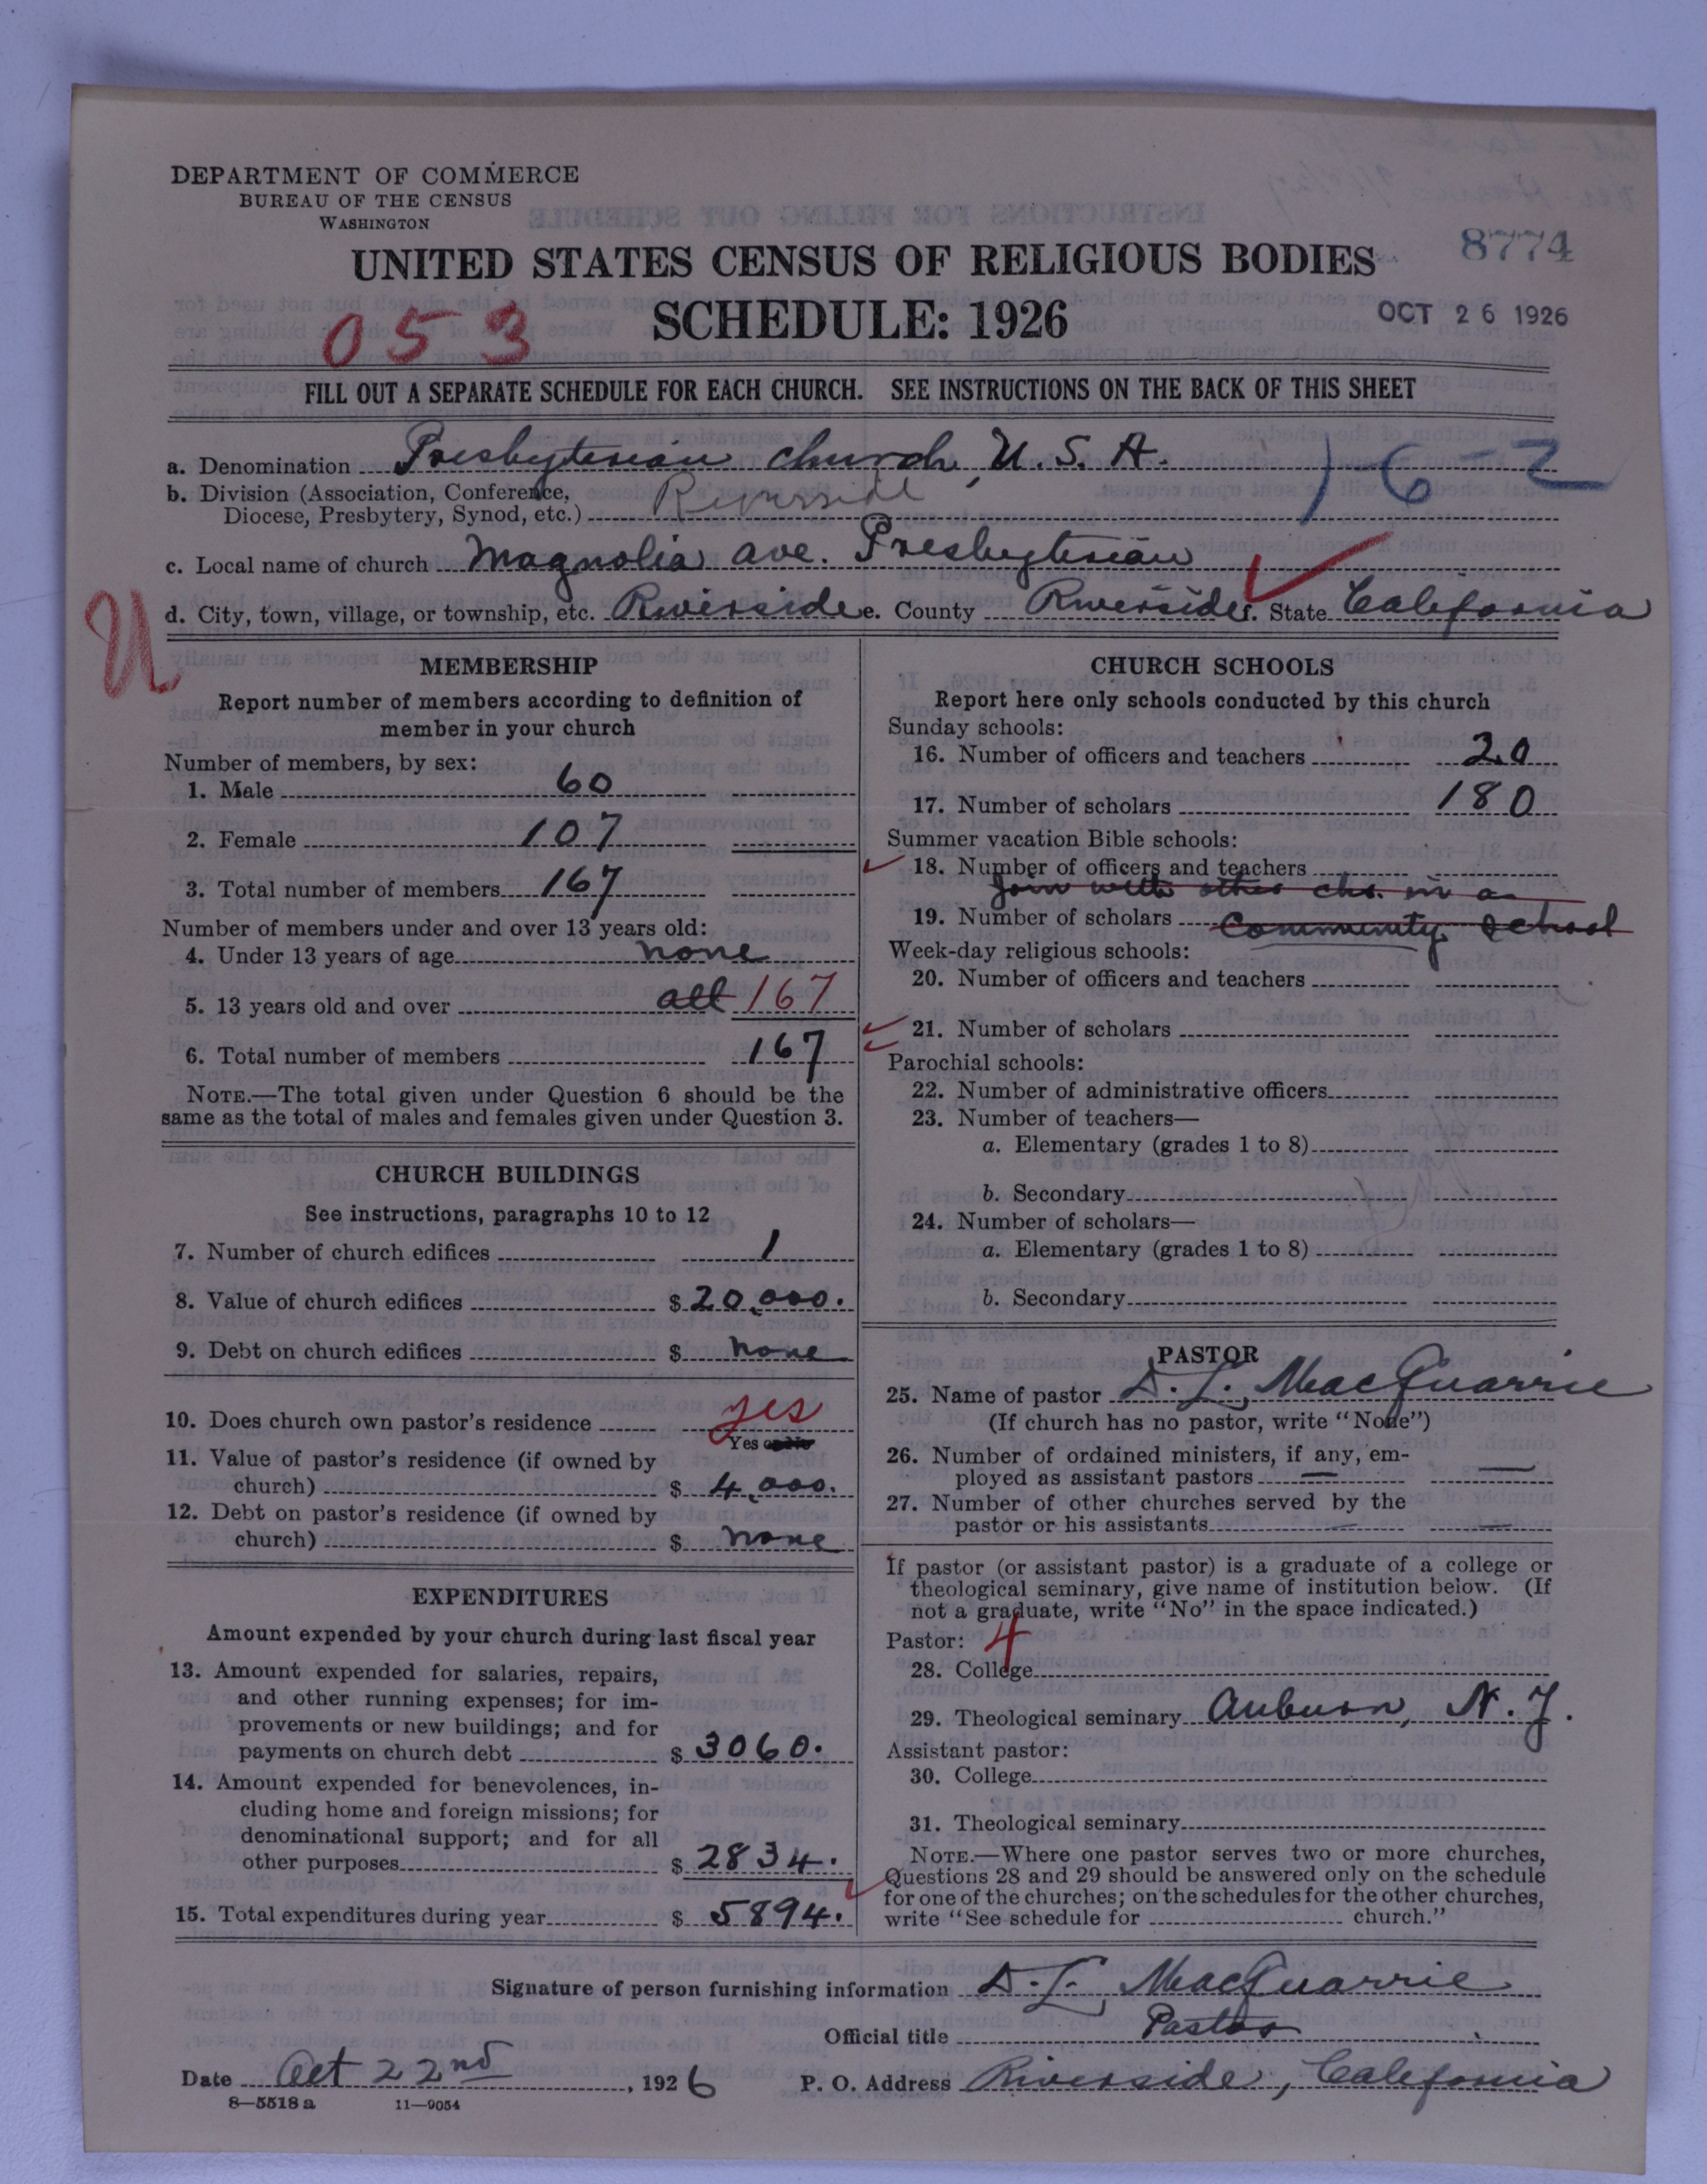 DEPARTMENT OF COMMERCE
BUREAU OF THE CENSUS
WASHINGTON
UNITED STATES CENSUS OF RELIGIOUS BODIES
8774
SCHEDULE: 1926
OCT 26 1926
053
FILL OUT A SEPARATE SCHEDULE FOR EACH CHURCH. SEE INSTRUCTIONS ON THE BACK OF THIS SHEET
a. Denomination Presbyterian church, U.S.A. 16-2
b. Division (Association, Conference, Riverside
Diocese, Presbytery, Synod, etc.)
c. Local name of church Magnolia ave. Presbyterian
U
d. City, town, village, or township, etc. Riverside e. County Riverside f. State California
MEMBERSHIP
Report number of members according to definition of
member in your church
Number of members, by sex:
1. Male 60
2. Female 107
3. Total number of members 167
Number of members under and over 13 years old:
4. Under 13 years of age none
5. 13 years old and over all 167
6. Total number of members 167
NOTE.—The total given under Question 6 should be the
same as the total of males and females given under Question 3.
CHURCH BUILDINGS
See instructions, paragraphs 10 to 12
7. Number of church edifices 1
8. Value of church edifices $ 20,000.
9. Debt on church edifices $ none
10. Does church own pastor's residence yes
Yes or No
11. Value of pastor's residence (if owned by
church) $ 4,000.
12. Debt on pastor's residence (if owned by
church) $ none
EXPENDITURES
Amount expended by your church during last fiscal year
13. Amount expended for salaries, repairs,
and other running expenses; for im-
provements or new buildings; and for
payments on church debt $ 3060.
14. Amount expended for benevolences, in-
cluding home and foreign missions; for
denominational support; and for all
other purposes $ 2834.
15. Total expenditures during year $ 5894.
CHURCH SCHOOLS
Report here only schools conducted by this church
Sunday schools:
16. Number of officers and teachers 20
17. Number of scholars 180
Summer vacation Bible schools:
18. Number of officers and teachers
Join with other chs. in a
19. Number of scholars Community School
Week-day religious schools:
20. Number of officers and teachers
21. Number of scholars
Parochial schools:
22. Number of administrative officers
23. Number of teachers—
a. Elementary (grades 1 to 8)
b. Secondary
24. Number of scholars—
a. Elementary (grades 1 to 8)
b. Secondary
PASTOR
25. Name of pastor D. L. MacQuarrie
(If church has no pastor, write "None")
26. Number of ordained ministers, if any, em-
ployed as assistant pastors — —
27. Number of other churches served by the
pastor or his assistants — —
If pastor (or assistant pastor) is a graduate of a college or
theological seminary, give name of institution below. (If
not a graduate, write "No" in the space indicated.)
Pastor: 4
28. College
29. Theological seminary Auburn, N.Y.
Assistant pastor:
30. College
31. Theological seminary
NOTE.—Where one pastor serves two or more churches,
Questions 28 and 29 should be answered only on the schedule
for one of the churches; on the schedules for the other churches,
write "See schedule for church."
Signature of person furnishing information D. L. MacQuarrie
Official title Pastor
Date Oct 22nd, 1926 P. O. Address Riverside, California
8—5518a 11—9054